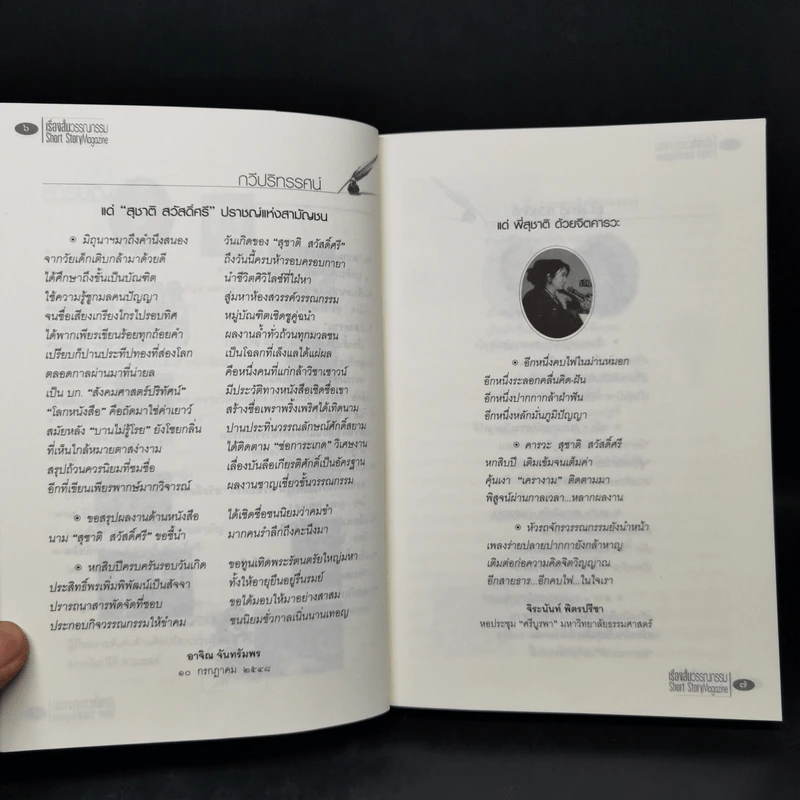 ๖
เรื่องสั้นวรรณกรรม
Short StoryMagazine
กวีปริทรรศน์
แด่ “สุชาติ สวัสดิ์ศรี” ปราชญ์แห่งสามัญชน
๏ มิถุนาฯมาถึงคำนึงสนอง วันเกิดของ “สุชาติ สวัสดิ์ศรี”
จากวัยเด็กเติบกล้ามาด้วยดี ถึงวันนี้ครบห้ารอบครอบกายา
ได้ศึกษาถึงขั้นเป็นบัณฑิต นำชีวิตศิวิไลซ์ที่ใฝ่หา
ใช้ความรู้ชูกมลคนปัญญา สู่มหาห้องสวรรค์วรรณกรรม
จนชื่อเสียงเกรียงไกรไปรอบทิศ หมู่บัณฑิตเชิดชูคู่ฉนำ
ได้พากเพียรเขียนร้อยทุกถ้อยคำ ผลงานล้ำทั่วถ้วนทุกมวลชน
เปรียบก็ปานประทีปทองที่ส่องโลก เป็นโฉลกที่เล็งแลได้แผ่ผล
ตลอดกาลผ่านมาที่น่ายล คือหนึ่งคนที่แก่กล้าวิชาเชาวน์
เป็น บก. “สังคมศาสตร์ปริทัศน์” มีประวัติทางหนังสือเชิดชื่อเขา
“โลกหนังสือ” คือถัดมาใช่ค่าเยาว์ สร้างชื่อเพราพริ้งเพริศได้เทิดนาม
สมัยหลัง “บานไม่รู้โรย” ยังโชยกลิ่น ปานประทิ่นวรรณลักษณ์ศักดิ์สยาม
ที่เห็นใกล้หมายตาสง่างาม ได้ติดตาม “ช่อการะเกด” วิเศษงาน
สรุปถ้วนควรนิยมที่ชมชื่อ เลื่องบันลือเกียรติศักดิ์เป็นอัครฐาน
อีกที่เขียนเพียรพากษ์มากวิจารณ์ ผลงานชาญเชี่ยวชั้นวรรณกรรม
๏ ขอสรุปผลงานด้านหนังสือ ได้เชิดชื่อชนนิยมว่าคมขำ
นาม “สุชาติ สวัสดิ์ศรี” ขอชี้นำ มากคนรำลึกถึงคะนึงมา
๏ หกสิบปีครบครันรอบวันเกิด ขอทูนเทิดพระรัตนตรัยใหญ่มหา
ประสิทธิ์พรเพิ่มพิพัฒน์เป็นสัจจา ทั้งให้อายุยืนอยู่รื่นรมย์
ปรารถนาสารพัดจัดที่ชอบ ขอได้มอบให้มาอย่างสาสม
ประกอบกิจวรรณกรรมให้ขำคม ชนนิยมชั่วกาลเนิ่นนานเทอญ
อาจิณ จันทรัมพร
๑๐ กรกฎาคม ๒๕๔๘
แด่ พี่สุชาติ ด้วยจิตคารวะ
๏ อีกหนึ่งคบไฟในม่านหมอก
อีกหนึ่งระลอกคลื่นคิด-ฝัน
อีกหนึ่งปากกากล้าฝ่าฟัน
อีกหนึ่งหลักมั่นภูมิปัญญา
๏ คารวะ สุชาติ สวัสดิ์ศรี
หกสิบปี เติมเข้มจนเต็มค่า
คุ้นเงา “เครางาม” ติดตามมา
พิสูจน์ผ่านกาลเวลา...หลากผลงาน
๏ หัวรถจักรวรรณกรรมยังนำหน้า
เพลงร่ายปลายปากกายังกล้าหาญ
เติมต่อก่อความคิดจิตวิญญาณ
อีกสายธาร...อีกคบไฟ...ในใจเรา
จิระนันท์ พิตรปรีชา
หอประชุม “ศรีบูรพา” มหาวิทยาลัยธรรมศาสตร์
เรื่องสั้นวรรณกรรม
Short StoryMagazine
๗